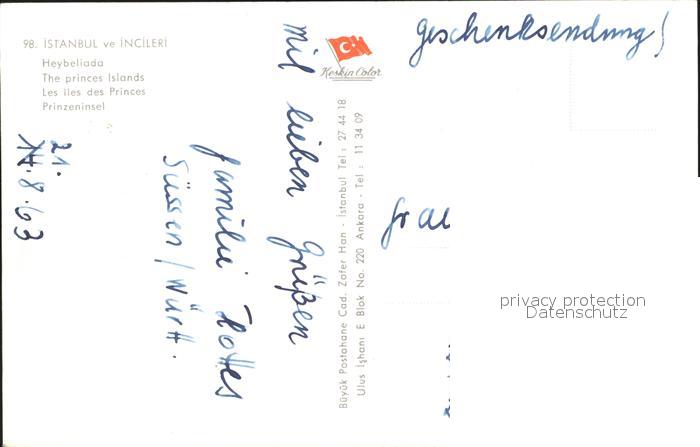 98. İSTANBUL ve İNCİLERİ
Heybeliada
The princes Islands
Les iles des Princes
Prinzeninsel
21.
14.8.63
mit lieben Grüßen
Familie
Süssen / Württ.
Keskin Color
Büyük Postahane Cad. Zafer Han - İstanbul Tel : 27 44 18
Ulus İşhanı E Blok No. 220 Ankara - Tel : 11 34 09
Geschenksendung!
privacy protection
Datenschutz